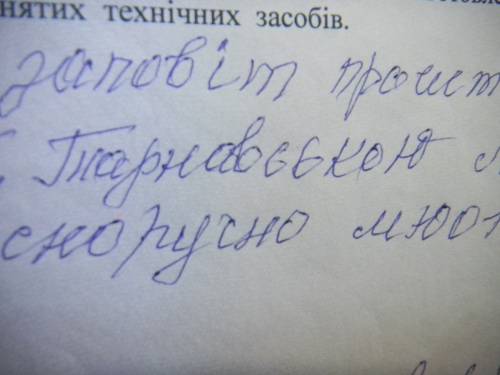 нятих технічних засобів.
заповіт прочит
Тарновською
сноручно мною